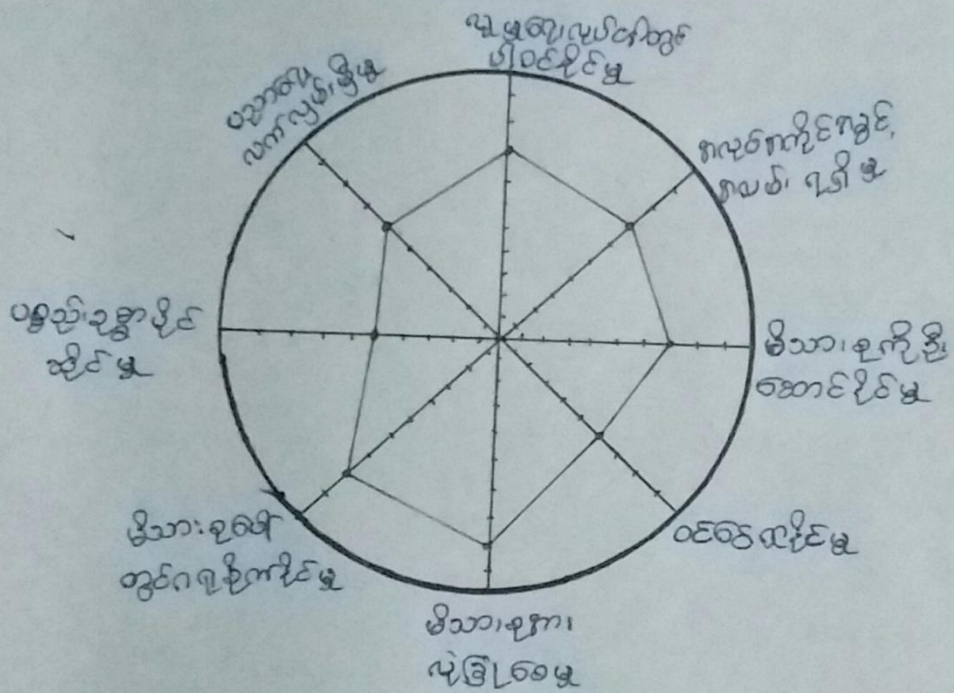 လူမှုရေးလုပ်ငန်းတွင်
ပါဝင်နိုင်မှု
အလုပ်အကိုင်အခွင့်
အလမ်း ရရှိမှု
မိသားစုကိုဦး
ဆောင်နိုင်မှု
ဝင်ငွေရနိုင်မှု
မိသားစုအား
လုံခြုံစေမှု
မိသားစုပေါ်
တွင်ဂရုစိုက်နိုင်မှု
ပစ္စည်းဥစ္စာပိုင်
ဆိုင်မှု
ပညာရေး
လက်လှမ်းမှီမှု